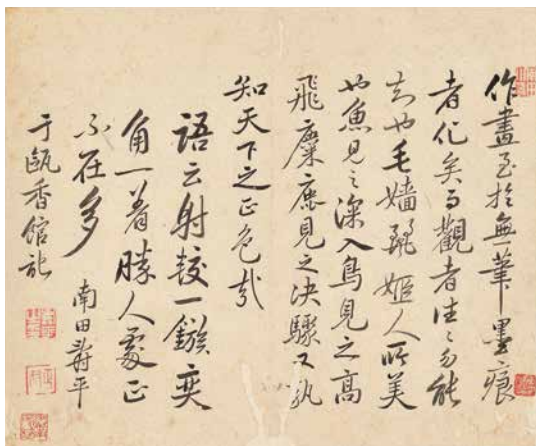 作畫至於無筆墨痕
者化矣而觀者往々勿能
知也毛嬙麗姬人所美
也魚見之深入鳥見之高
飛麋鹿見之決驟又孰
知天下之正色哉
語云射較一鏃奕
角一着勝人處正
不在多
南田壽平
于甌香館記